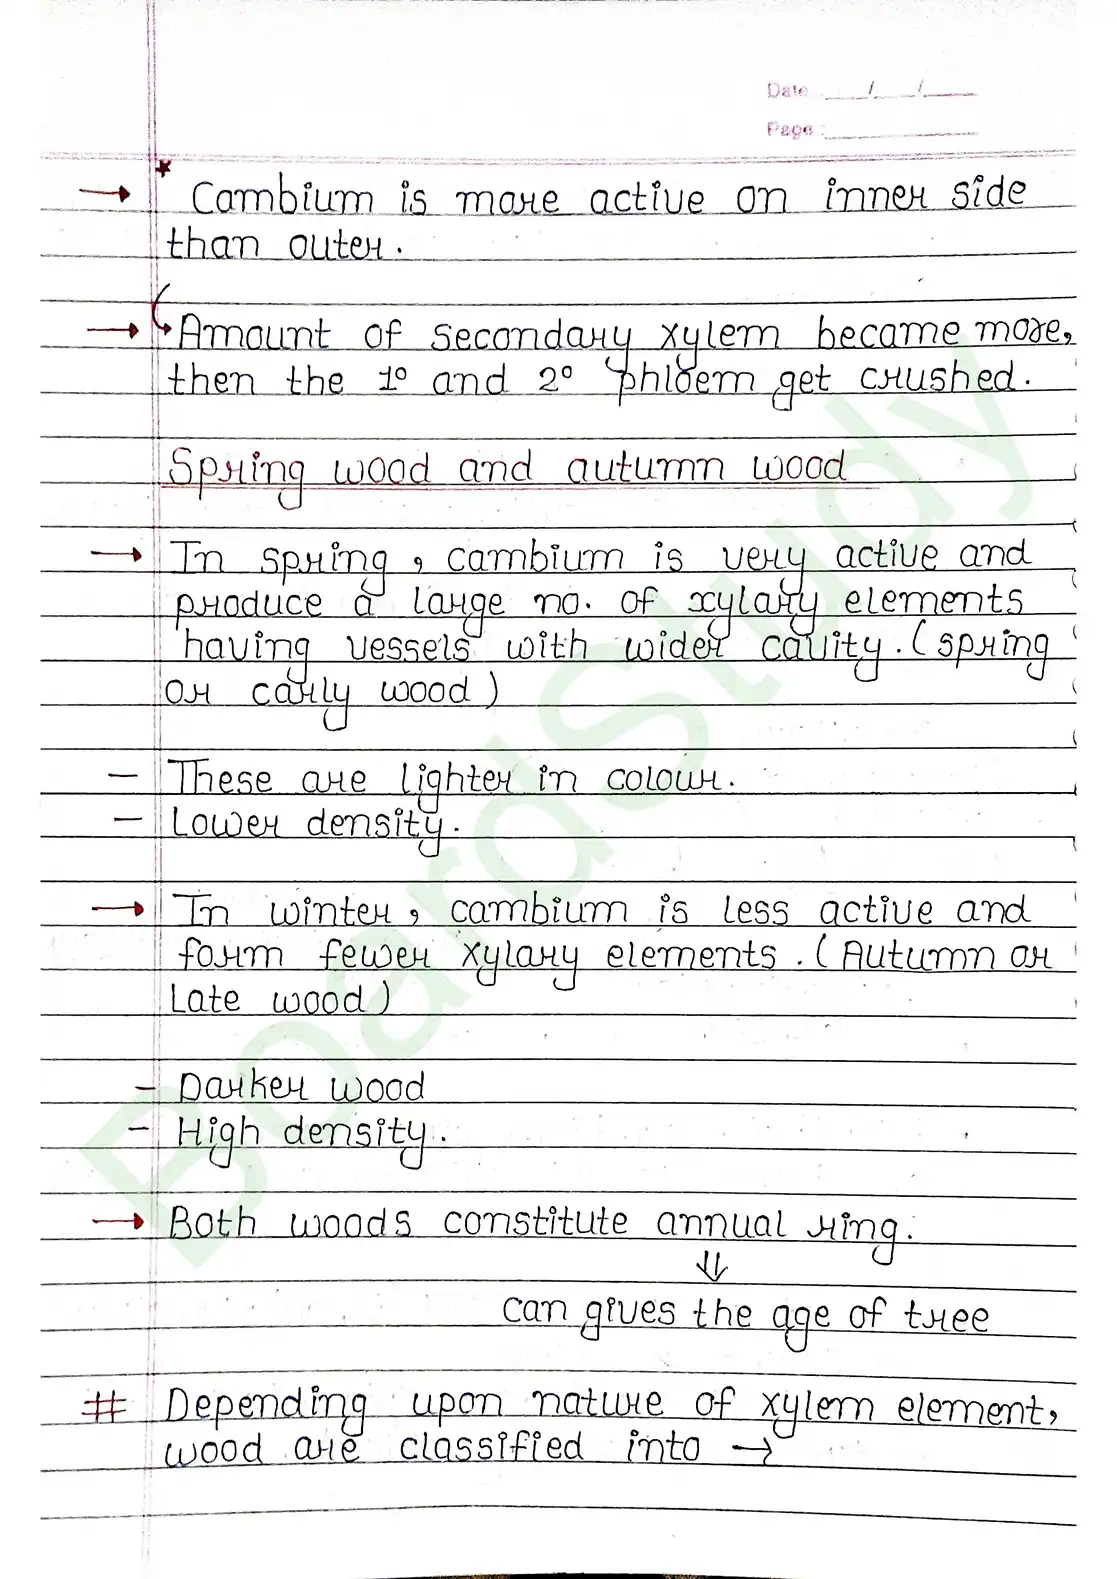 Date ___/___/___
Page :
* Cambium is more active on inner side
than outer.
Amount of secondary xylem became more,
then the 1° and 2° phloem get crushed.
Spring wood and autumn wood
→ In spring, cambium is very active and
produce a large no. of xylary elements
having vessels with wider cavity. (spring
or early wood)
- These are lighter in colour.
- Lower density.
→ In winter, cambium is less active and
form fewer xylary elements. (Autumn or
Late wood)
- Darker wood
- High density.
→ Both woods constitute annual ring.
⇓
can gives the age of tree
# Depending upon nature of xylem element,
wood are classified into →
BoardStudy